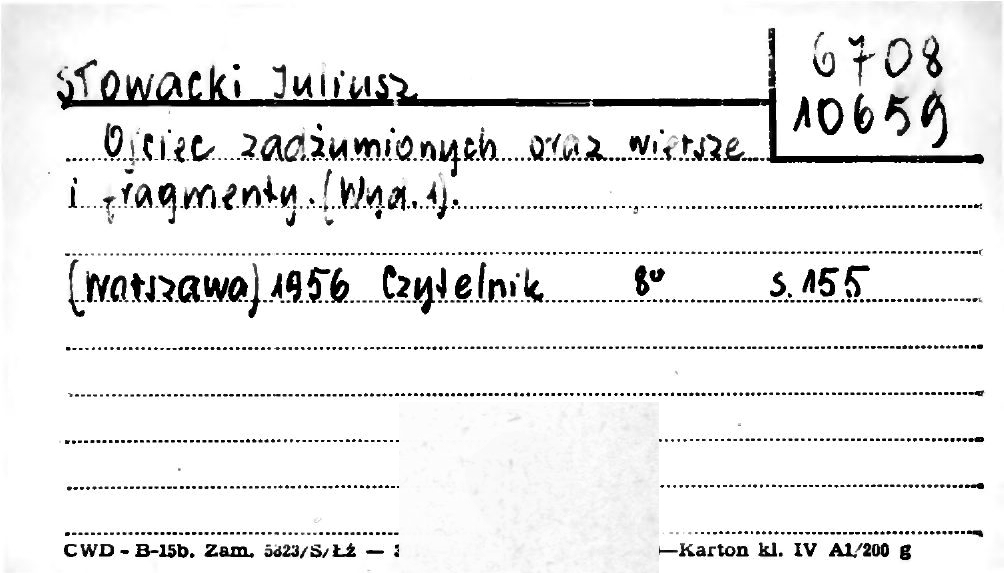 6708
Słowacki Juliusz
10659
Ojciec zadżumionych oraz wiersze
i fragmenty. (Wyd. 1).
(Warszawa) 1956 Czytelnik 8° s. 155
CWD - B-15b. Zam. 5823/S/ŁŻ — —Karton kl. IV A1/200 g